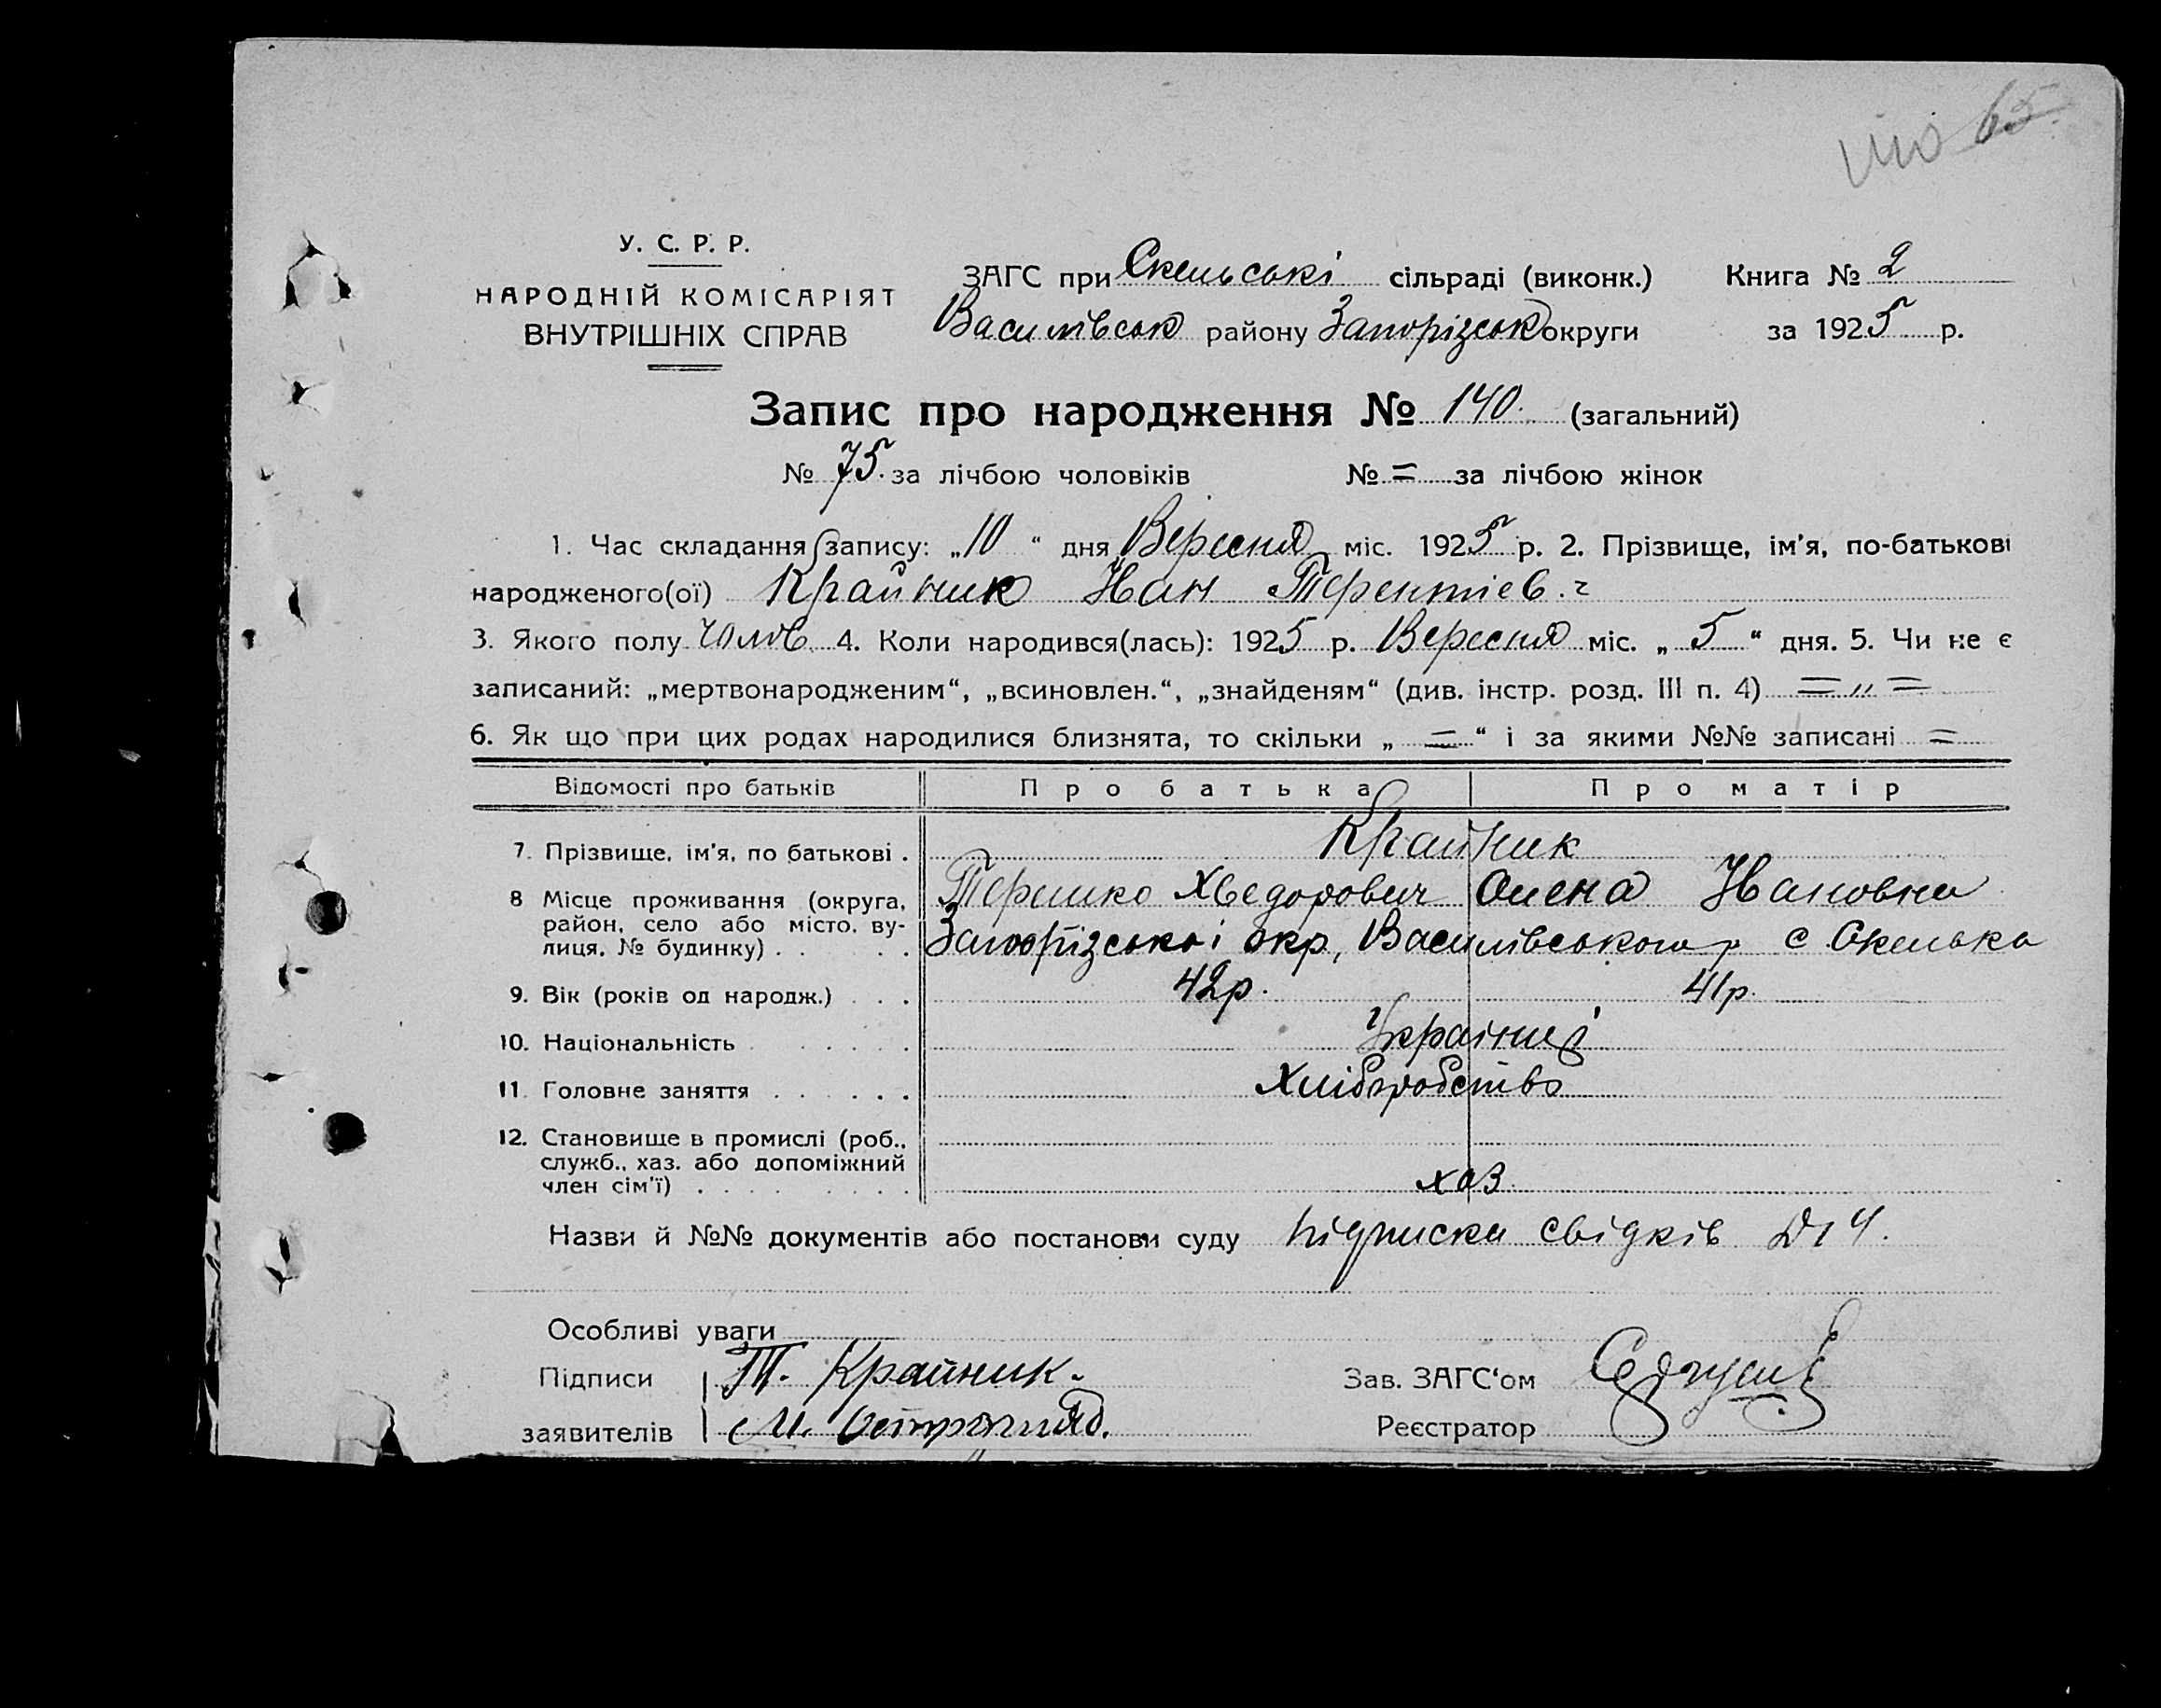 65.
У. С. Р. Р.
НАРОДНІЙ КОМІСАРІЯТ
ВНУТРІШНІХ СПРАВ
ЗАГС при Скельські сільраді (виконк.) Книга № 2
Василівськ району Запорізськ округи за 1925 р.
Запис про народження № 140. (загальний)
№ 75. за лічбою чоловіків № = за лічбою жінок
1. Час складання запису: „10“ дня Вересня міс. 1925 р. 2. Прізвище, ім'я, по-батькові
народженого(ої) Крайник Иван Терентіев. ч
3. Якого полу Чолов 4. Коли народився(лась): 1925 р. Вересня міс. „5“ дня. 5. Чи не є
записаний: „мертвонародженим“, „всиновлен.“, „знайденям“ (див. інстр. розд. III п. 4) = „ =
6. Як що при цих родах народилися близнята, то скільки „ = “ і за якими №№ записані =
Відомості про батьків Про батька Про матір
7. Прізвище, ім'я, по батькові . Крайник
Терешко Хведорович Олена Ивановна
8 Місце проживання (округа, район, село або місто, вулиця, № будинку) . . . . Запорізської окр, Василівського р с. Скелька
9. Вік (років од народж.) . . . 42р. 41р.
10. Національність . . . . . Українці
11. Головне заняття . . . . . . Хліборобство
12. Становище в промислі (роб., служб., хаз. або допоміжний член сім'ї) . . . . . . хаз
Назви й №№ документів або постанови суду підписка свідків
Особливі уваги
Підписи Т. Крайник.
заявителів М.
Зав. ЗАГС'ом
Реєстратор